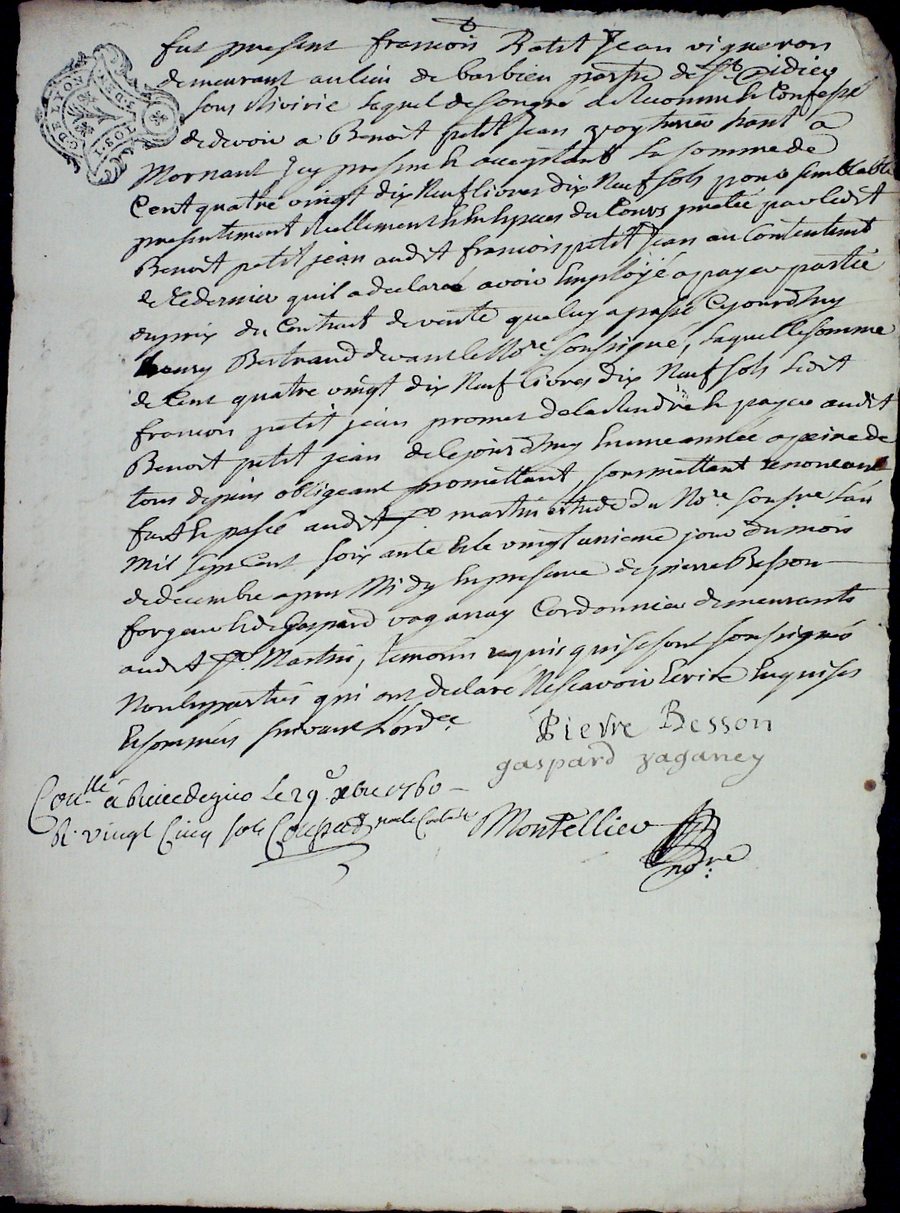 fut present francois Petit Jean vigneron
demeurant au lieu de barbieu parsse de St Didier
sous Rivirie lequel de son gré a Recconnu & Confessé
de devoir a Benoit petit Jean habitant à
Mornant Icy present & acceptant La somme de
Cent quatre vingt dix Neuf livres dix Neuf sols pour semblable
presentement Reellement & En Espèces du Cours pretée par ledit
Benoit petit jean audit francois petit Jean au Contentement
de Ce dernier quil a declaré avoir Employé a payer partie
du prix du Contrat de vente que luy a passé Cejourdhuy
heury Bertrand devant le Nore soussigné, Laquelle somme
de Cent quatre vingt dix Neuf livres dix Neuf sols Ledit
francois petit jean promet de la Rendre & payer audit
Benoit petit jean de Cejourdhuy En une année a peine de
tous depens obligeant promettant, soumettant renoncant
fait & passé audit St martin Etude du Nore sousre L'an
mil sept Cent soixante & le vingt unieme jour du mois
de decembre apres Midy En presence de pierre Besson
forgeur & de Gaspard vaganay Cordonnier demeurants
audit St Martin, temoins requis qui se sont soussignés
Non les parties qui ont declaré Ne scavoir Ecrire Enquises
& sommées suivant L'ordce
Pierre Besson
gaspard vaganey
Conllé à Rivedegier Le 29e xbre 1760
R. vingt Cinq sols
Montellier
nore
G. DE LYON